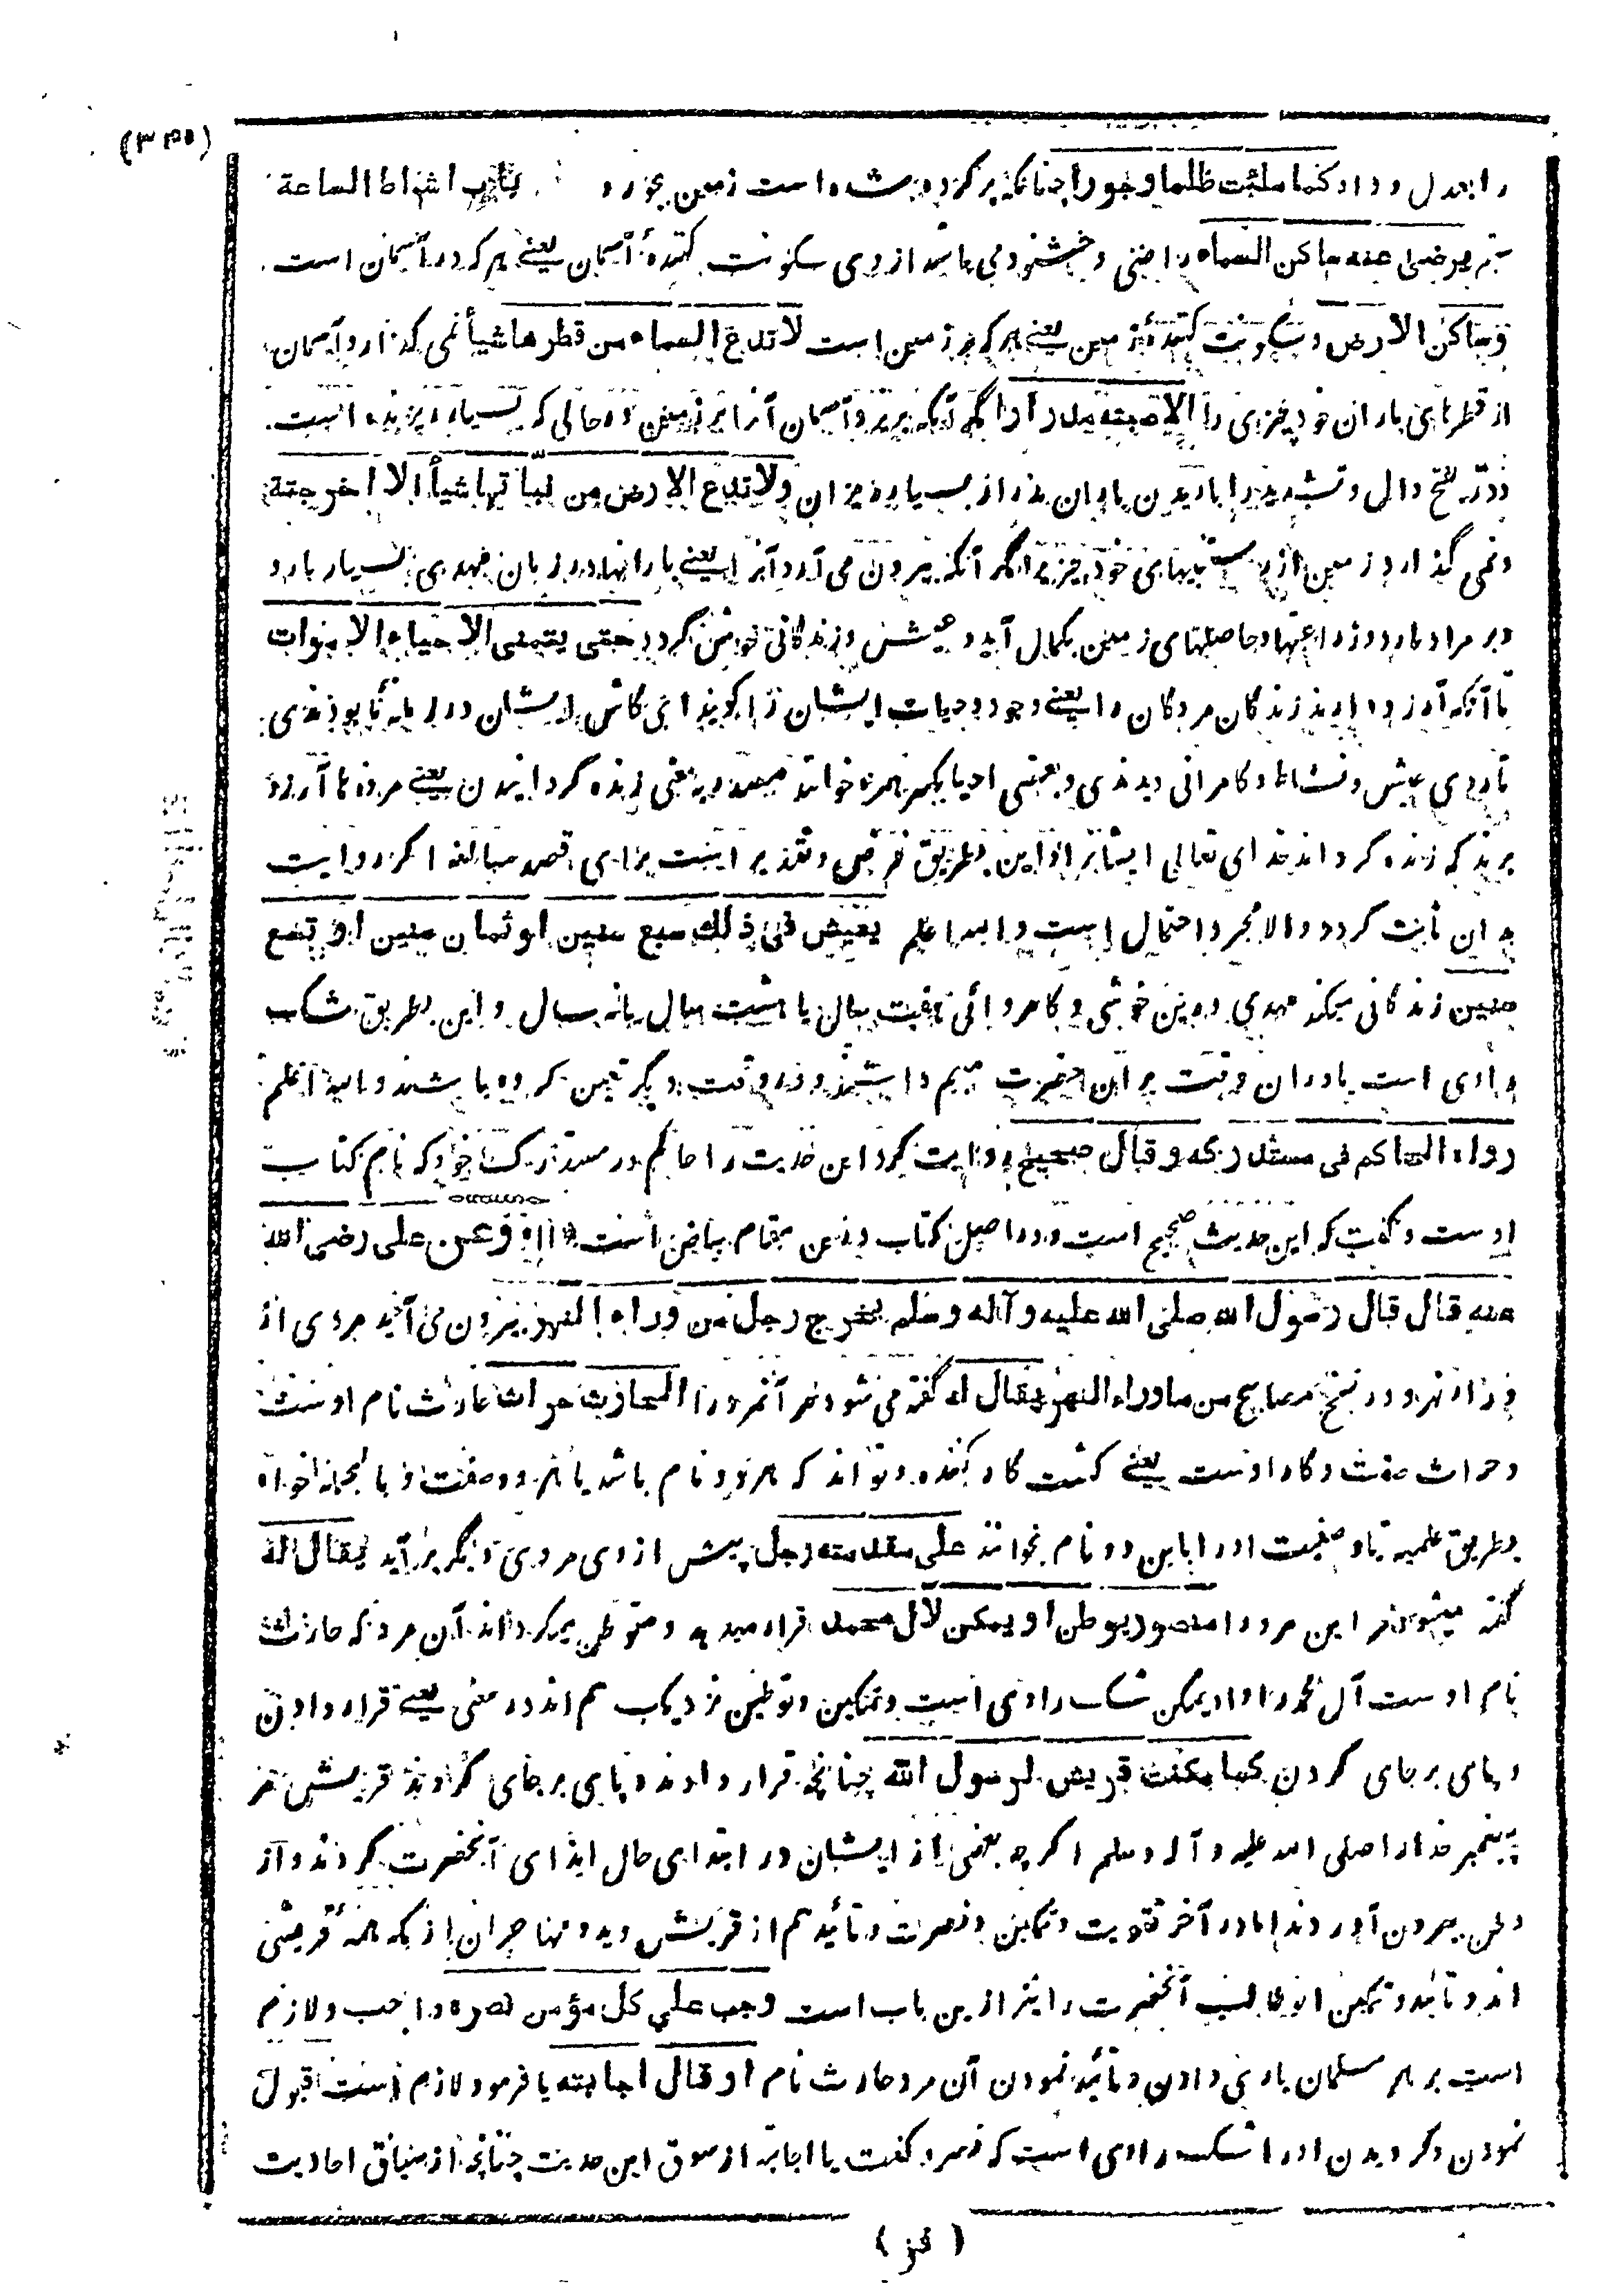 (۳۴۵)
را بعدل و داد کما ملئت ظلما و جورا چنانکه پر کرده شده است زمین بجور و باب اشراط الساعة
ستم یرضی عنه ساکن السماء راضی و خشنود می باشد از وی سکونت کننده آسمان یعنے هر که در آسمان است
و ساکن الارض و سکونت کننده زمین یعنے هر که بر زمین است لا تدع السماء من قطرها شیأ نمی گذارد آسمان
از قطرهای باران خود چیزی را الا صبته مدرارا مگر آنکه بریزد آسمان آنرا بر زمین در حالی که بسیار ریزنده است
درّ بفتح دال و تشدید را باریدن باران مدرار بسیار ریزان ولا تدع الارض من نباتها شیأ الا اخرجته
و نمی گذارد زمین از رستنیهای خود چیزی را مگر آنکه بیرون می آرد آنرا یعنے بارانها در زمان مهدی بسیار بارد
و بر مراد بارد و زراعتها و حاصلهای زمین بکمال آید و عیش و زندگانی خوش گردد حتی یتمنی الاحیاء الاموات
تا آنکه آرزو دارند زندگان مردگان را یعنے وجود و حیات ایشان را گویند ای کاش ایشان درین مایه بودندی
تا روی عیش و نشاط و کامرانی دیدندی و بعضی احیا بکسر همزه خوانند مصدر بمعنی زنده گردانیدن یعنے مردها آرزو
برند که زنده گرداند خدای تعالی ایشانرا و این بطریق فرض و تقدیر است برای قصد مبالغه اگر روایت
به آن ثابت گردد والا مجرد احتمال است والله اعلم یعیش فی ذلك سبع سنین او ثمان سنین او تسع
سنین زندگانی میکند مهدی درین خوشی و کامروائی هفت سال یا هشت سال یا نه سال و این بطریق شک
راوی است یا در آن وقت بر آن حضرت مبهم داشتند و در وقت دیگر تعین کرده باشند والله اعلم
رواه الحاکم فی مستدرکه و قال صحیح روایت کرد این حدیث را حاکم در مستدرک خود که نام کتاب
اوست و گفت که این حدیث صحیح است و در اصل کتاب درین مقام بیاض است وعن علی رضی الله
عنه قال قال رسول الله صلی الله علیه وآله وسلم یخرج رجل من وراء النهر بیرون می آید مردی از
ورا نهر و در نسخ مصابیح من ماوراء النهر یقال له گفته می شود مر آنمرد را الحارث حراث حارث نام اوست
و حراث صفت و کار اوست یعنے کشت کار کننده و تواند که هر دو نام باشد یا هر دو صفت و بالجمله خواه
بطریق علمیه یا وصفیت او را باین دو نام بخوانند علی مقدمته رجل پیش از وی مردی دیگر برآید یقال له
گفته میشود مر این مرد را منصور یوطن او یمکن لال محمد قرار میدهد و متوطن میگرداند آن مرد که حارث
نام اوست آل محمد را او یمکن شک راوی است و تمکین و توطین نزدیک هم اند در معنی یعنے قرار دادن
و پای برجای کردن کما مکنت قریش لرسول الله چنانچه قرار دادند و پای برجای کردند قریش مر
پیغمبر خدا را صلی الله علیه و آله وسلم اگر چه بعضی از ایشان در ابتدای حال ایذای آنحضرت کردند و از
وطن بیرون آوردند اما در آخر تقویت و تمکین و نصرت و تأیید هم از قریش دید و مهاجران از مکه همه قریشی
اند و تأیید و تمکین ابو طالب آنحضرت را نیز ازین باب است وجب علی کل مؤمن نصره واجب و لازم
است بر هر مسلمان یاری دادن و تأیید نمودن آن مرد حارث نام او قال اجابته یا فرمود لازم است قبول
نمودن و گرویدن او را شک راوی است که نصره گفت یا اجابته از سوق این حدیث چنانچه از سیاق احادیث